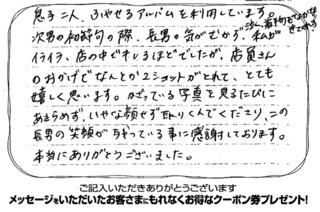 息子二人、ふやせるアルバムを利用しています。
次男の初節句の際、長男の気がむかず、私が
イライラ、店の中でキレるほどでしたが、店員さん
のおかげでなんとか2ショットがとれて、とても
嬉しく思います。かざっている写真を見るたびに
あきらめず、いやな顔せずとりくんでくださり、この
長男の笑顔が残っている事に感謝しております。
本当にありがとうございました。
ご記入いただきありがとうございます
メッセージをいただいたお客さまにもれなくお得なクーポン券プレゼント!